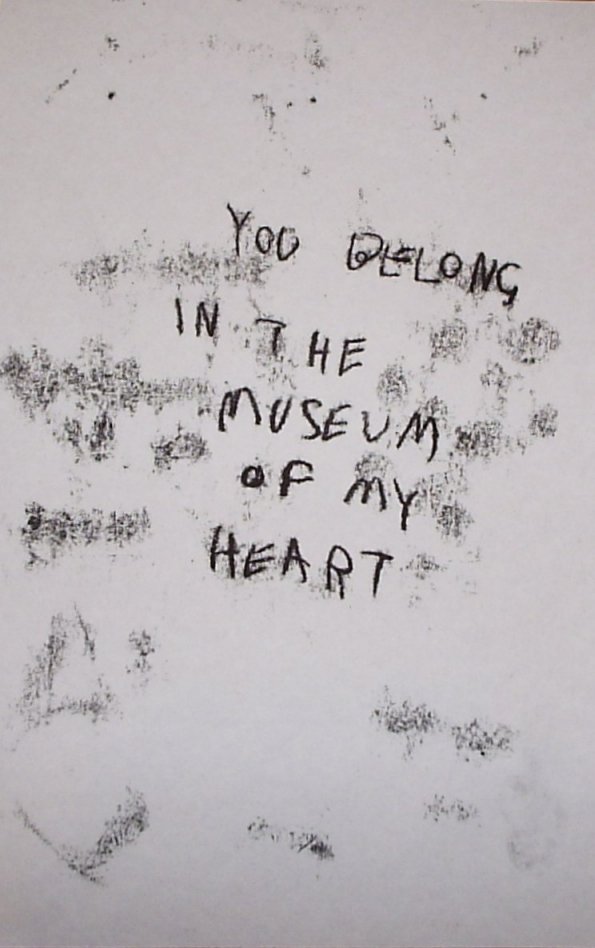 YOU BELONG
IN THE
MUSEUM
OF MY
HEART